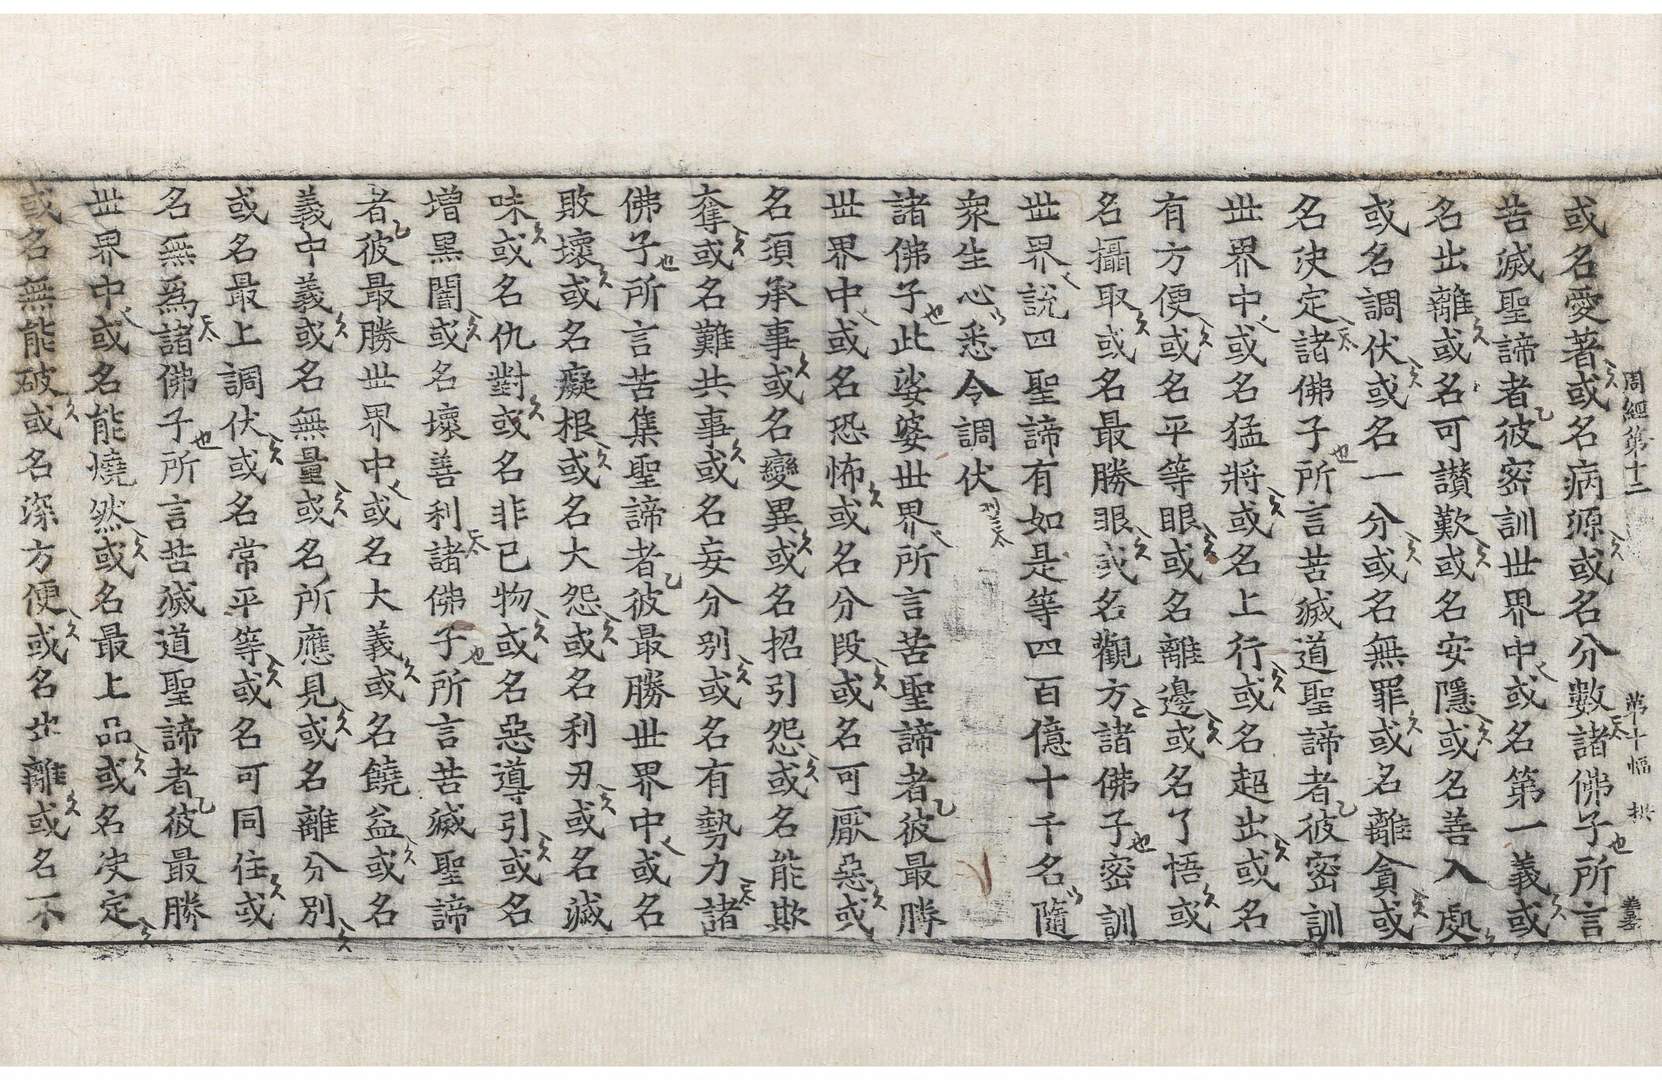 周經第十二 第十幅
或名愛著或名病源或名分數諸佛子所言
苦滅聖諦者彼密訓世界中或名第一義或
名出離或名可讃歎或名安隱或名善入處
或名調伏或名一分或名無罪或名離貪或
名決定諸佛子所言苦滅道聖諦者彼密訓
世界中或名猛將或名上行或名超出或名
有方便或名平等眼或名離邊或名了悟或
名攝取或名最勝眼或名觀方諸佛子密訓
世界說四聖諦有如是等四百億十千名隨
衆生心悉令調伏
諸佛子此娑婆世界所言苦聖諦者彼最勝
世界中或名恐怖或名分段或名可厭惡或
名須承事或名變異或名招引怨或名能欺
奪或名難共事或名妄分別或名有勢力諸
佛子所言苦集聖諦者彼最勝世界中或名
敗壞或名癡根或名大怨或名利刃或名滅
味或名仇對或名非已物或名惡導引或名
增黑闇或名壞善利諸佛子所言苦滅聖諦
者彼最勝世界中或名大義或名饒益或名
義中義或名無量或名所應見或名離分別
或名最上調伏或名常平等或名可同住或
名無爲諸佛子所言苦滅道聖諦者彼最勝
世界中或名能燒然或名最上品或名決定
或名無能破或名深方便或名出離或名不